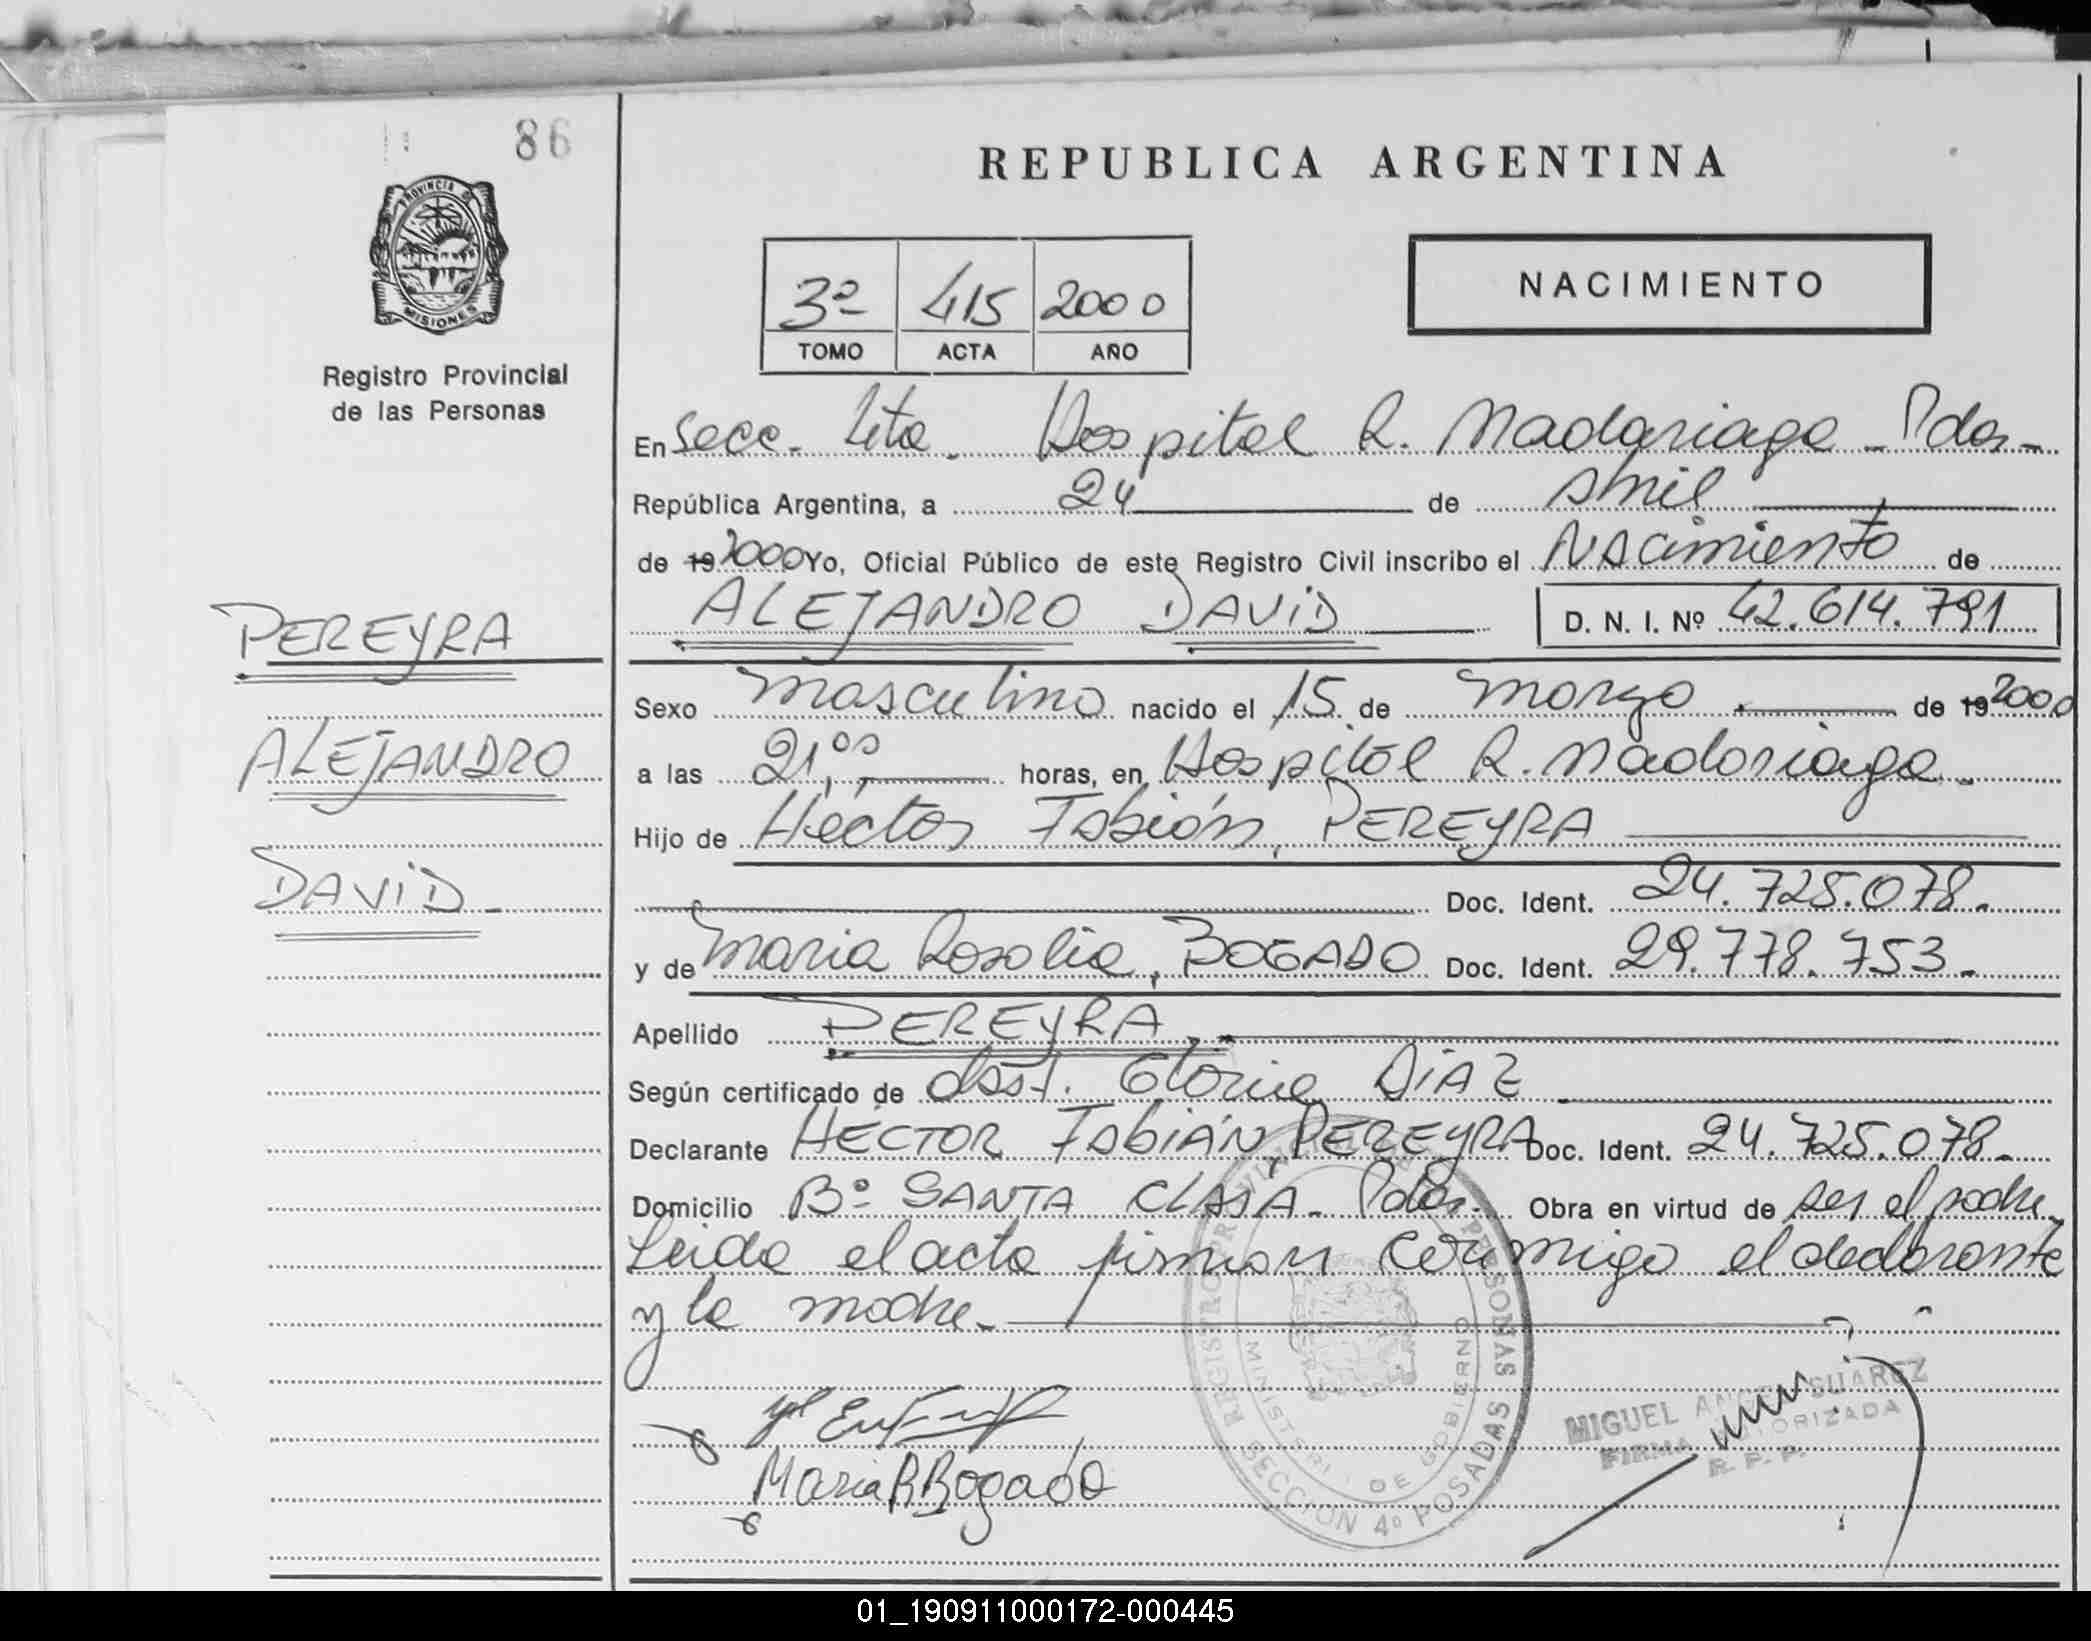 86
PROVINCIA DE
MISIONES
Registro Provincial
de las Personas
REPUBLICA ARGENTINA
3º 415 2000
TOMO ACTA AÑO
NACIMIENTO
En Secc. 4ta. Hospital R. Madariaga - Pdas -
República Argentina, a 24 de Abril
de 19 2000 Yo, Oficial Público de este Registro Civil inscribo el Nacimiento de
ALEJANDRO DAVID D. N. I. Nº 42.614.791
PEREYRA
ALEJANDRO
DAVID -
Sexo masculino nacido el 15 de marzo de 19 2000
a las 21,00 horas, en Hospital R. Madariaga -
Hijo de Héctor Fabián, PEREYRA
Doc. Ident. 24.725.078.
y de Maria Rosalia, BOGADO Doc. Ident. 29.778.753.
Apellido PEREYRA
Según certificado de Obst. Gloria DIAZ
Declarante HÉCTOR Fabián, PEREYRA Doc. Ident. 24.725.078.
Domicilio Bº SANTA CLARA - Pdas. Obra en virtud de ser el padre.
Leida el acta firman conmigo el declarante
y la madre.
Maria R Bogado
REGISTRO PROVINCIAL PERSONAS
MINISTERIO DE GOBIERNO
SECCION 4º POSADAS
MIGUEL ANGEL SUAREZ
FIRMA AUTORIZADA
R. P. P.
01_190911000172-000445